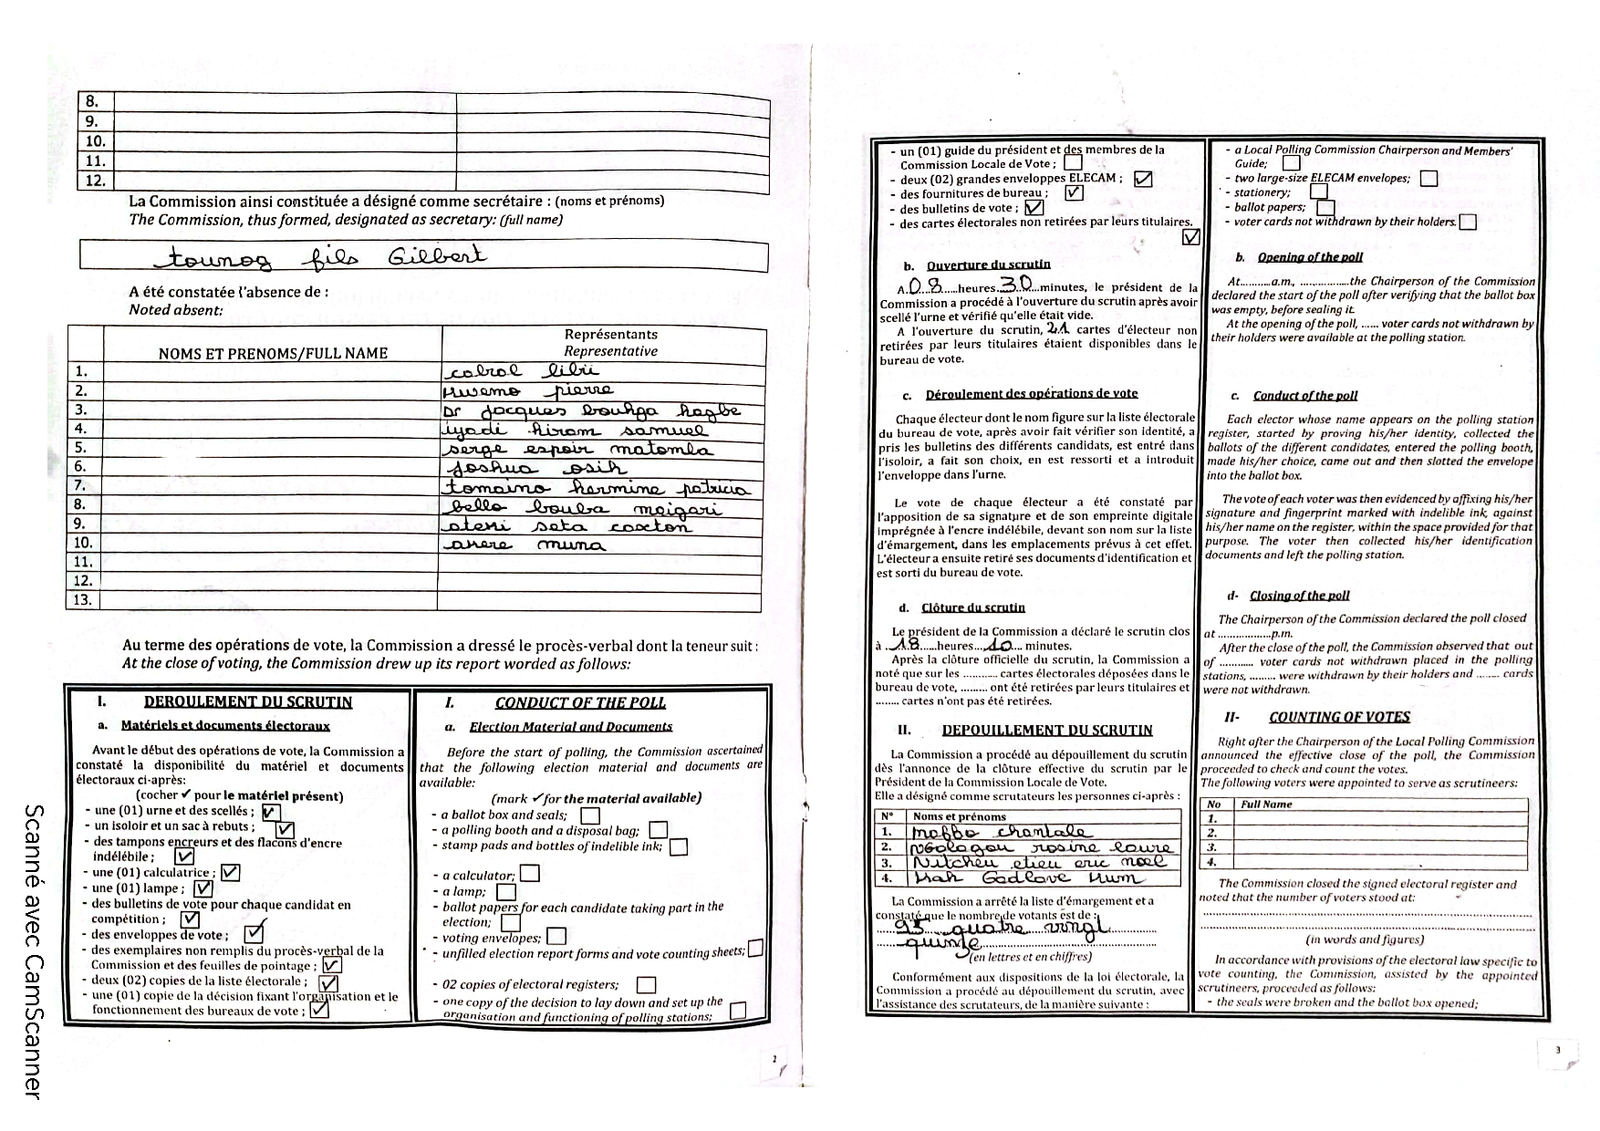 8.
9.
10.
11.
12.
La Commission ainsi constituée a désigné comme secrétaire : (noms et prénoms)
The Commission, thus formed, designated as secretary: (full name)
tounog fils Gilbert
A été constatée l'absence de :
Noted absent:
NOMS ET PRENOMS/FULL NAME
Représentants
Representative
1. cabral libii
2. Kwemo pierre
3. Dr Jacques bouhga hagbe
4. iyodi hiram samuel
5. serge espoir matomba
6. Joshua osih
7. tomaino hermine patricia
8. bello bouba maigari
9. ateki seta caxton
10. akere muna
11.
12.
13.
Au terme des opérations de vote, la Commission a dressé le procès-verbal dont la teneur suit :
At the close of voting, the Commission drew up its report worded as follows:
I. DEROULEMENT DU SCRUTIN
a. Matériels et documents électoraux
Avant le début des opérations de vote, la Commission a
constaté la disponibilité du matériel et documents
électoraux ci-après:
(cocher ✓ pour le matériel présent)
- une (01) urne et des scellés ; ☑
- un isoloir et un sac à rebuts ; ☑
- des tampons encreurs et des flacons d'encre
indélébile ; ☑
- une (01) calculatrice ; ☑
- une (01) lampe ; ☑
- des bulletins de vote pour chaque candidat en
compétition ; ☑
- des enveloppes de vote ; ☑
- des exemplaires non remplis du procès-verbal de la
Commission et des feuilles de pointage ; ☑
- deux (02) copies de la liste électorale ; ☑
- une (01) copie de la décision fixant l'organisation et le
fonctionnement des bureaux de vote ; ☑
I. CONDUCT OF THE POLL
a. Election Material and Documents
Before the start of polling, the Commission ascertained
that the following election material and documents are
available:
(mark ✓ for the material available)
- a ballot box and seals; ☐
- a polling booth and a disposal bag; ☐
- stamp pads and bottles of indelible ink; ☐
- a calculator; ☐
- a lamp; ☐
- ballot papers for each candidate taking part in the
election; ☐
- voting envelopes; ☐
- unfilled election report forms and vote counting sheets; ☐
- 02 copies of electoral registers; ☐
- one copy of the decision to lay down and set up the
organisation and functioning of polling stations; ☐
2
- un (01) guide du président et des membres de la
Commission Locale de Vote ; ☐
- deux (02) grandes enveloppes ELECAM ; ☑
- des fournitures de bureau ; ☑
- des bulletins de vote ; ☑
- des cartes électorales non retirées par leurs titulaires.
☑
b. Ouverture du scrutin
A 08 heures 30 minutes, le président de la
Commission a procédé à l'ouverture du scrutin après avoir
scellé l'urne et vérifié qu'elle était vide.
A l'ouverture du scrutin, 21 cartes d'électeur non
retirées par leurs titulaires étaient disponibles dans le
bureau de vote.
c. Déroulement des opérations de vote
Chaque électeur dont le nom figure sur la liste électorale
du bureau de vote, après avoir fait vérifier son identité, a
pris les bulletins des différents candidats, est entré dans
l'isoloir, a fait son choix, en est ressorti et a introduit
l'enveloppe dans l'urne.
Le vote de chaque électeur a été constaté par
l'apposition de sa signature et de son empreinte digitale
imprégnée à l'encre indélébile, devant son nom sur la liste
d'émargement, dans les emplacements prévus à cet effet.
L'électeur a ensuite retiré ses documents d'identification et
est sorti du bureau de vote.
d. Clôture du scrutin
Le président de la Commission a déclaré le scrutin clos
à 18 heures 10 minutes.
Après la clôture officielle du scrutin, la Commission a
noté que sur les ........... cartes électorales déposées dans le
bureau de vote, ......... ont été retirées par leurs titulaires et
........ cartes n'ont pas été retirées.
II. DEPOUILLEMENT DU SCRUTIN
La Commission a procédé au dépouillement du scrutin
dès l'annonce de la clôture effective du scrutin par le
Président de la Commission Locale de Vote.
Elle a désigné comme scrutateurs les personnes ci-après :
N° Noms et prénoms
1. maffo chantale
2. rosine laure
3. Nitcheu etieu eric noel
4. Kah Godlove Kum
La Commission a arrêté la liste d'émargement et a
constaté que le nombre de votants est de :
95 quatre vingt
quinze
(en lettres et en chiffres)
Conformément aux dispositions de la loi électorale, la
Commission a procédé au dépouillement du scrutin, avec
l'assistance des scrutateurs, de la manière suivante :
- a Local Polling Commission Chairperson and Members'
Guide; ☐
- two large-size ELECAM envelopes; ☐
- stationery; ☐
- ballot papers; ☐
- voter cards not withdrawn by their holders. ☐
b. Opening of the poll
At..........a.m., ..............the Chairperson of the Commission
declared the start of the poll after verifying that the ballot box
was empty, before sealing it.
At the opening of the poll, ...... voter cards not withdrawn by
their holders were available at the polling station.
c. Conduct of the poll
Each elector whose name appears on the polling station
register, started by proving his/her identity, collected the
ballots of the different candidates, entered the polling booth,
made his/her choice, came out and then slotted the envelope
into the ballot box.
The vote of each voter was then evidenced by affixing his/her
signature and fingerprint marked with indelible ink, against
his/her name on the register, within the space provided for that
purpose. The voter then collected his/her identification
documents and left the polling station.
d- Closing of the poll
The Chairperson of the Commission declared the poll closed
at .................p.m.
After the close of the poll, the Commission observed that out
of ........... voter cards not withdrawn placed in the polling
stations, ......... were withdrawn by their holders and ........ cards
were not withdrawn.
II- COUNTING OF VOTES
Right after the Chairperson of the Local Polling Commission
announced the effective close of the poll, the Commission
proceeded to check and count the votes.
The following voters were appointed to serve as scrutineers:
No Full Name
1.
2.
3.
4.
The Commission closed the signed electoral register and
noted that the number of voters stood at:
(in words and figures)
In accordance with provisions of the electoral law specific to
vote counting, the Commission, assisted by the appointed
scrutineers, proceeded as follows:
- the seals were broken and the ballot box opened;
3
Scanné avec CamScanner